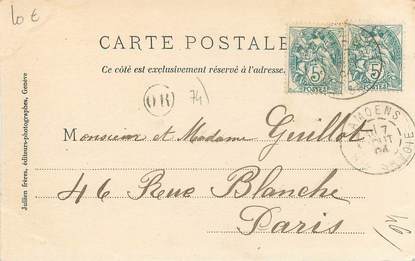 10 €
CARTE POSTALE
Ce côté est exclusivement réservé à l'adresse.
5
5
POSTES
POSTES
OR
74
Monsieur et Madame Guillot
46 Rue Blanche
Paris
17
AOUT
04
Jullien frères, éditeurs-photographes, Genève